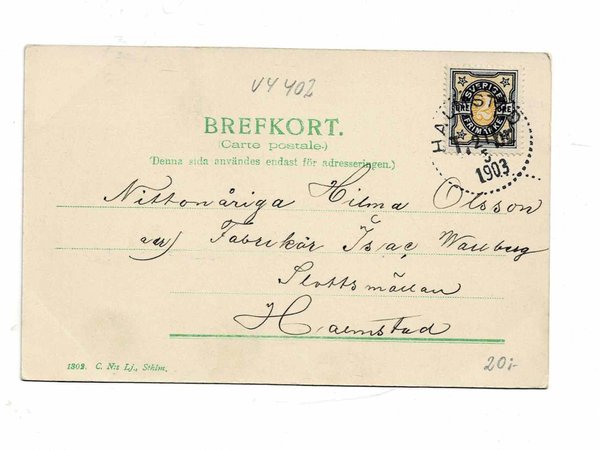 V4 402
SVERIGE
2
ÖRE ÖRE
FRIMÄRKE
HALMSTAD
1903
BREFKORT.
(Carte postale.)
(Denna sida användes endast för adresseringen.)
Nittonåriga Hilma Olsson
Fabrikör Isac Wallberg
Slottsmöllan
Halmstad
1302. C. N:s Lj., Sthlm.
20:-